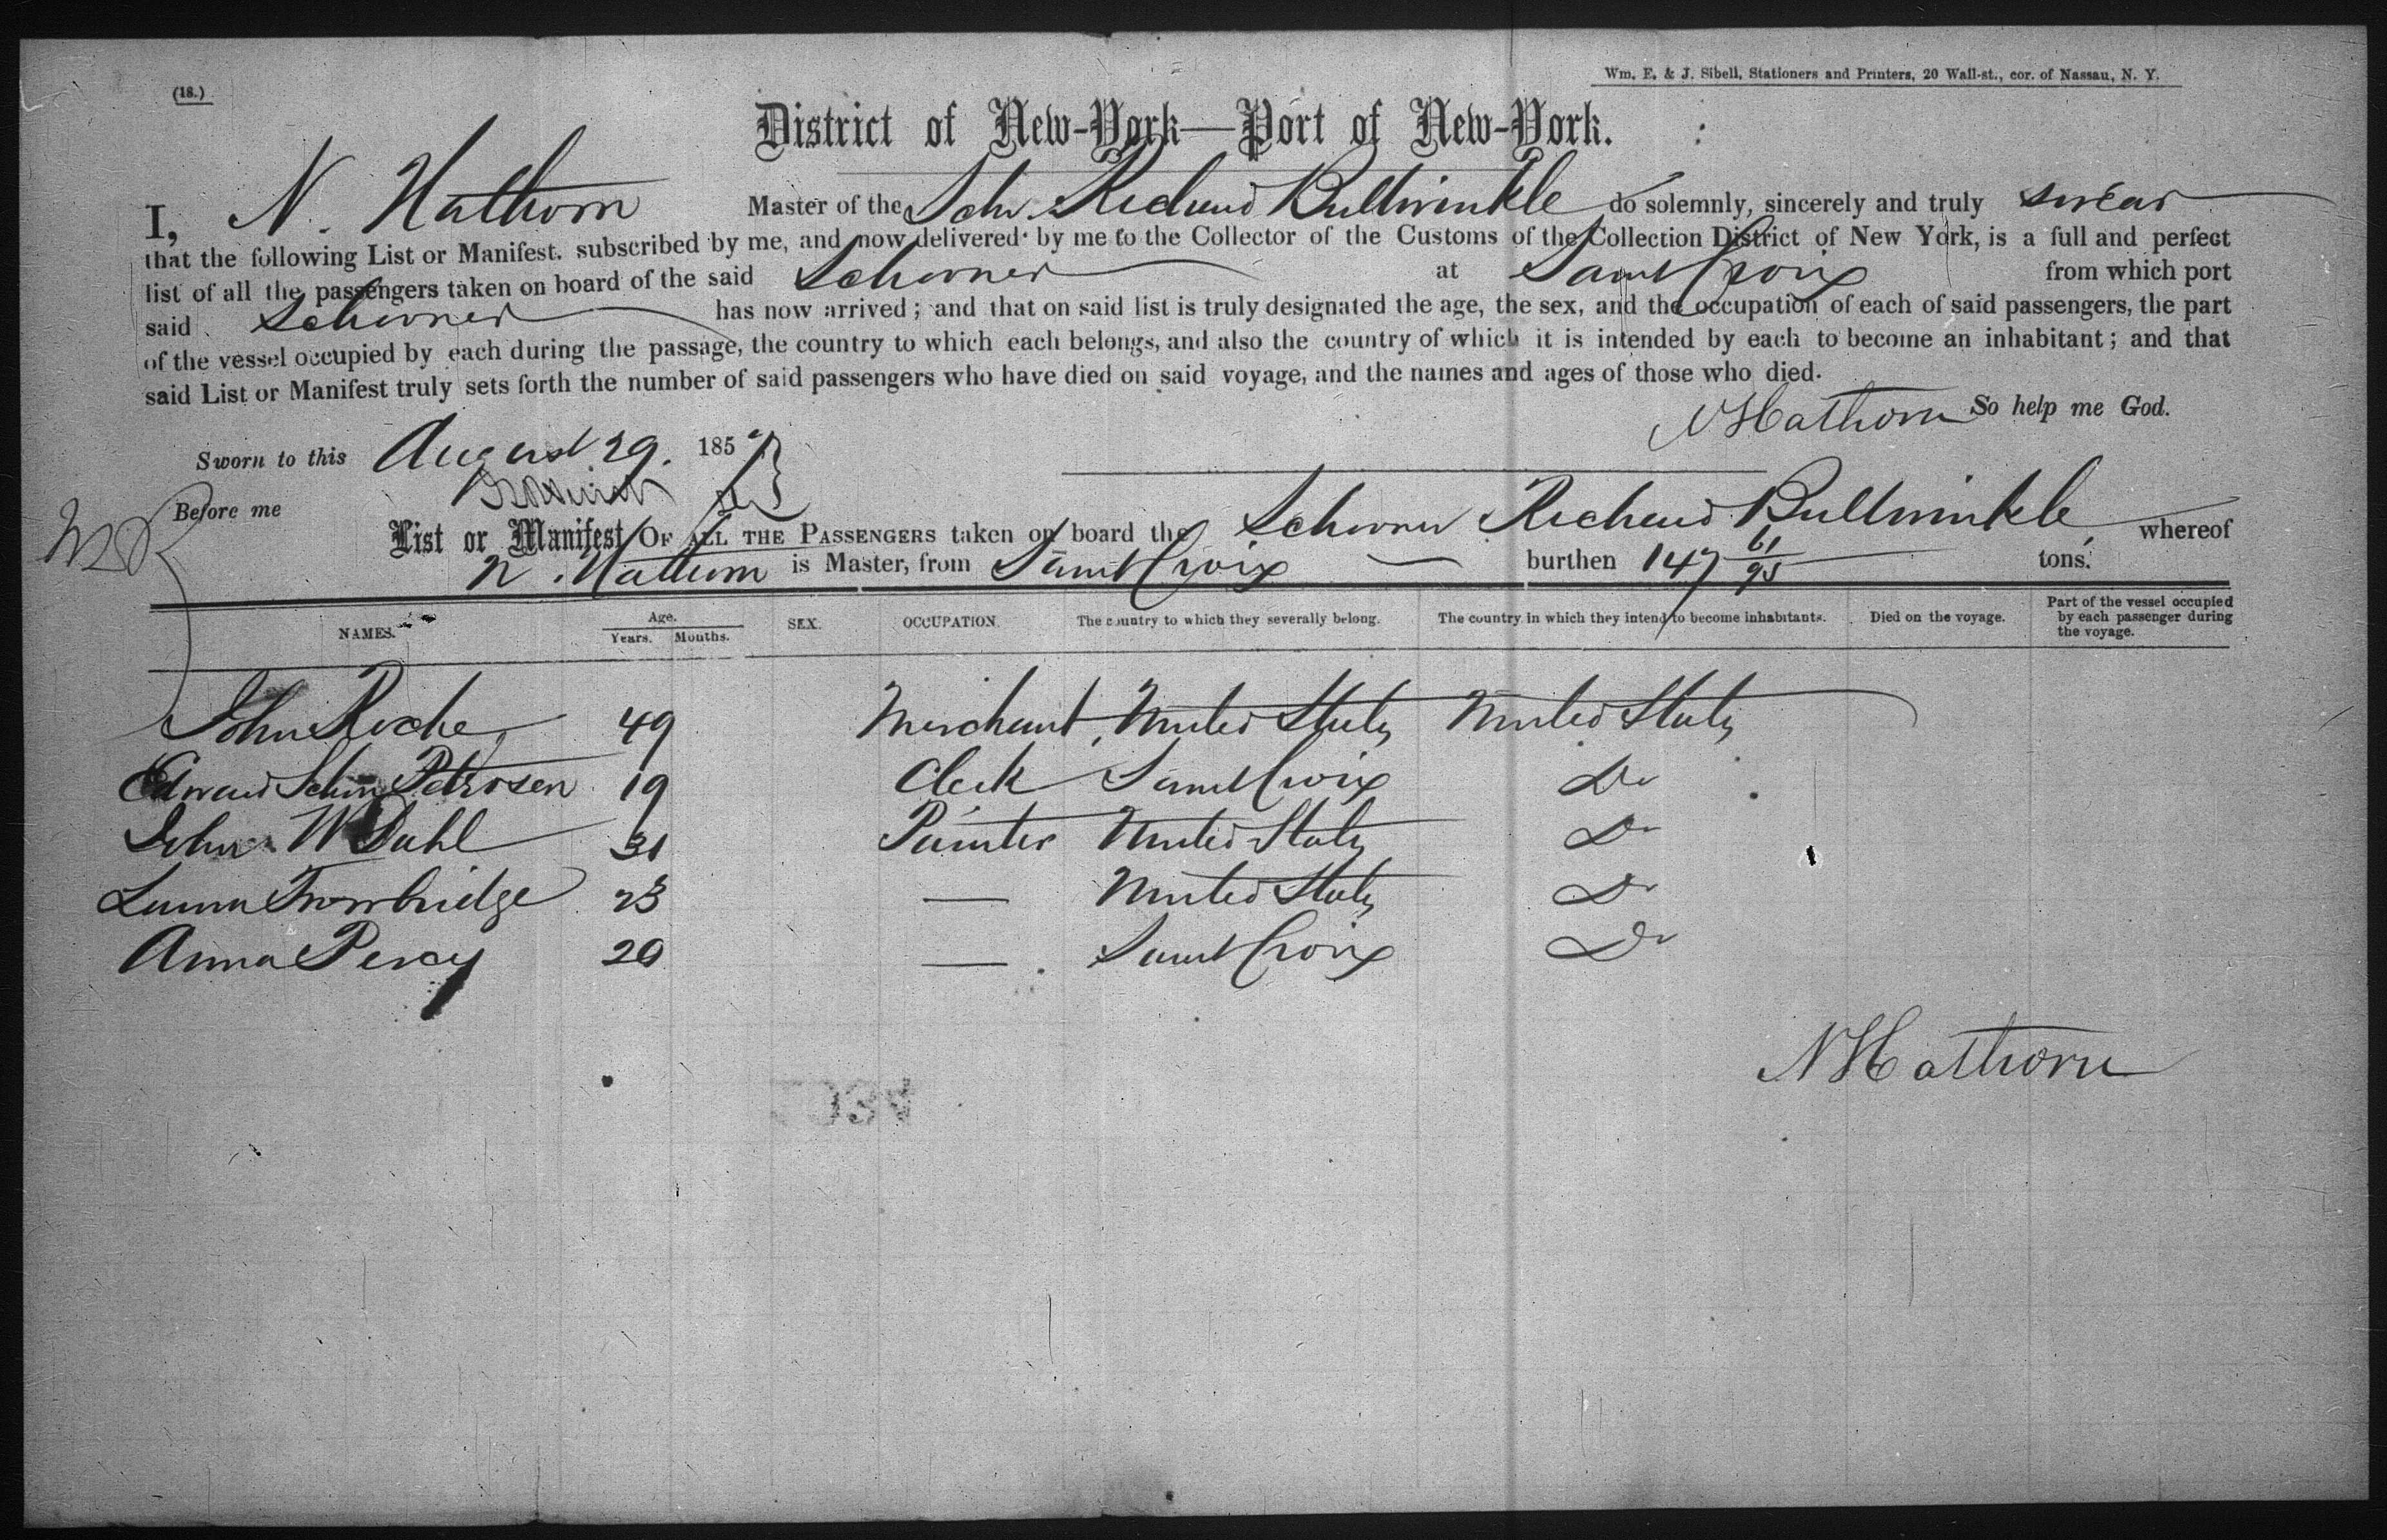 (18.)
Wm. E. & J. Sibell, Stationers and Printers, 20 Wall-st., cor. of Nassau, N. Y.
District of New-York—Port of New-York.
I, N. Hathorn Master of the Schr. Richard Bullwinkle do solemnly, sincerely and truly swear
that the following List or Manifest, subscribed by me, and now delivered by me to the Collector of the Customs of the Collection District of New York, is a full and perfect
list of all the passengers taken on board of the said Schooner at Saint Croix from which port
said Schooner has now arrived; and that on said list is truly designated the age, the sex, and the occupation of each of said passengers, the part
of the vessel occupied by each during the passage, the country to which each belongs, and also the country of which it is intended by each to become an inhabitant; and that
said List or Manifest truly sets forth the number of said passengers who have died on said voyage, and the names and ages of those who died.
N Hathorn So help me God.
Sworn to this August 29. 185
Before me
List or Manifest OF ALL THE PASSENGERS taken on board the Schooner Richard Bullwinkle whereof
N. Hathorn is Master, from Saint Croix burthen 147 61/95 tons.
NAMES. Age. Years. Months. SEX. OCCUPATION. The country to which they severally belong. The country in which they intend to become inhabitants. Died on the voyage. Part of the vessel occupied by each passenger during the voyage.
John Roche 49 Merchant United States United States
Edward Petersen 19 Clerk Saint Croix Do
John W Dahl 31 Painter United States Do
Trowbridge 23 — United States Do
Anna Percy 20 — Saint Croix Do
N Hathorn